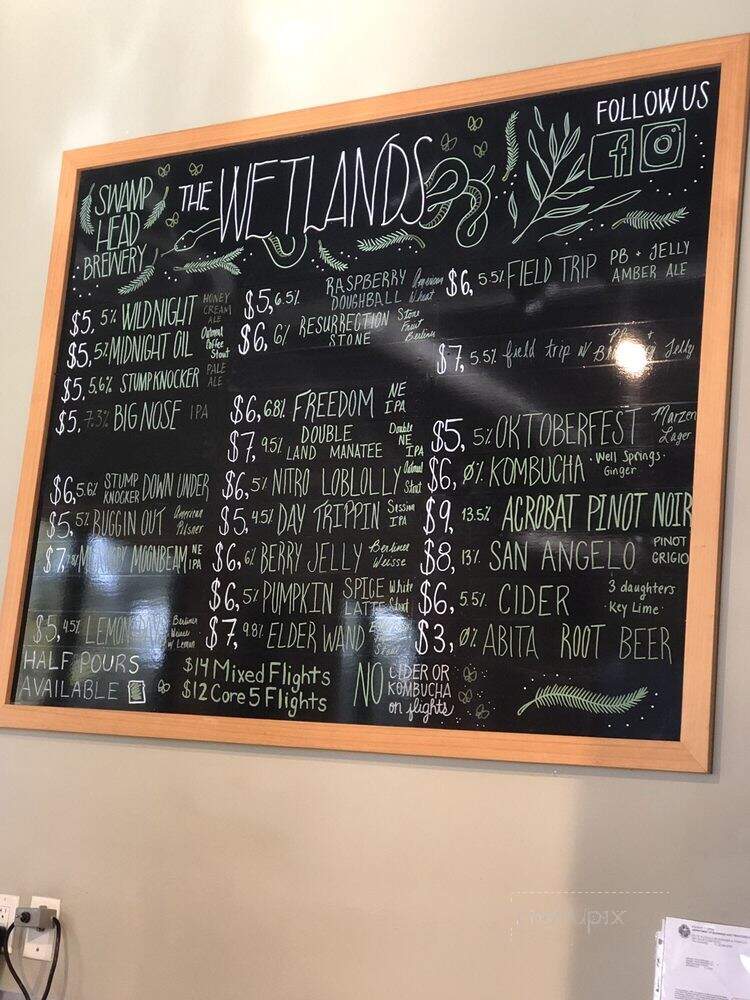 SWAMP
HEAD
BREWERY
THE WETLANDS
FOLLOW US
$5, 5% WILD NIGHT HONEY CREAM ALE
$5, 5% MIDNIGHT OIL Oatmeal Coffee Stout
$5, 5.6% STUMP KNOCKER PALE ALE
$5, 7.3% BIG NOSE IPA
$6, 5.6% STUMP KNOCKER DOWN UNDER
$5, 5% BUGGIN OUT American Pilsner
$7, MOONBEAM NE IPA
$5, 4.5% Berliner Weisse w/ Lemon
HALF POURS
AVAILABLE
$5, 6.5% RASPBERRY DOUGHBALL American Wheat
$6, 6% RESURRECTION STONE Stone Fruit Berliner
$6, 6.8% FREEDOM NE IPA
$7, 9.5% DOUBLE LAND MANATEE Double NE IPA
$6, 5% NITRO LOBLOLLY Oatmeal Stout
$5, 4.5% DAY TRIPPIN Session IPA
$6, 6% BERRY JELLY Berliner Weisse
$6, 5% PUMPKIN SPICE LATTE White Stout
$7, 9.8% ELDER WAND
$14 Mixed Flights
$12 Core 5 Flights
NO CIDER OR
KOMBUCHA
on flights
$6, 5.5% FIELD TRIP PB + JELLY AMBER ALE
$7, 5.5% field trip w/ Jelly
$5, 5% OKTOBERFEST Marzen Lager
$6, 0% KOMBUCHA · Well Springs · Ginger
$9, 13.5% ACROBAT PINOT NOIR
$8, 13% SAN ANGELO PINOT GRIGIO
$6, 5.5% CIDER 3 daughters · Key Lime ·
$3, 0% ABITA ROOT BEER